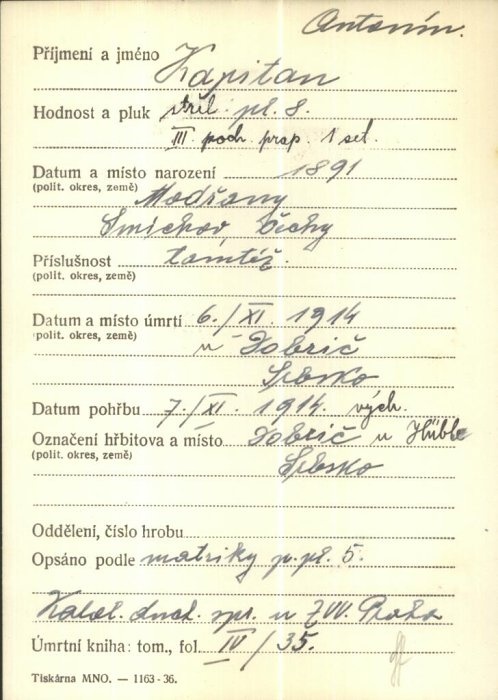 Antonín.
Příjmení a jméno Kapitan
Hodnost a pluk střel. pl. 8.
III. poch. prap. 1 set.
Datum a místo narození 1891
(polit. okres, země) Modřany
Smíchov, Čechy
Příslušnost tamtéž.
(polit. okres, země)
Datum a místo úmrtí 6./XI. 1914
(polit. okres, země) u Dobrič
Srbsko
Datum pohřbu 7./XI. 1914. vých.
Označení hřbitova a místo Dobrič u Hübbe
(polit. okres, země) Srbsko
Oddělení, číslo hrobu
Opsáno podle matriky p. pl. 5.
Katol. duch. spr. u ZVV. Praha
Úmrtní kniha: tom., fol. IV/35.
Tiskárna MNO. — 1163-36.